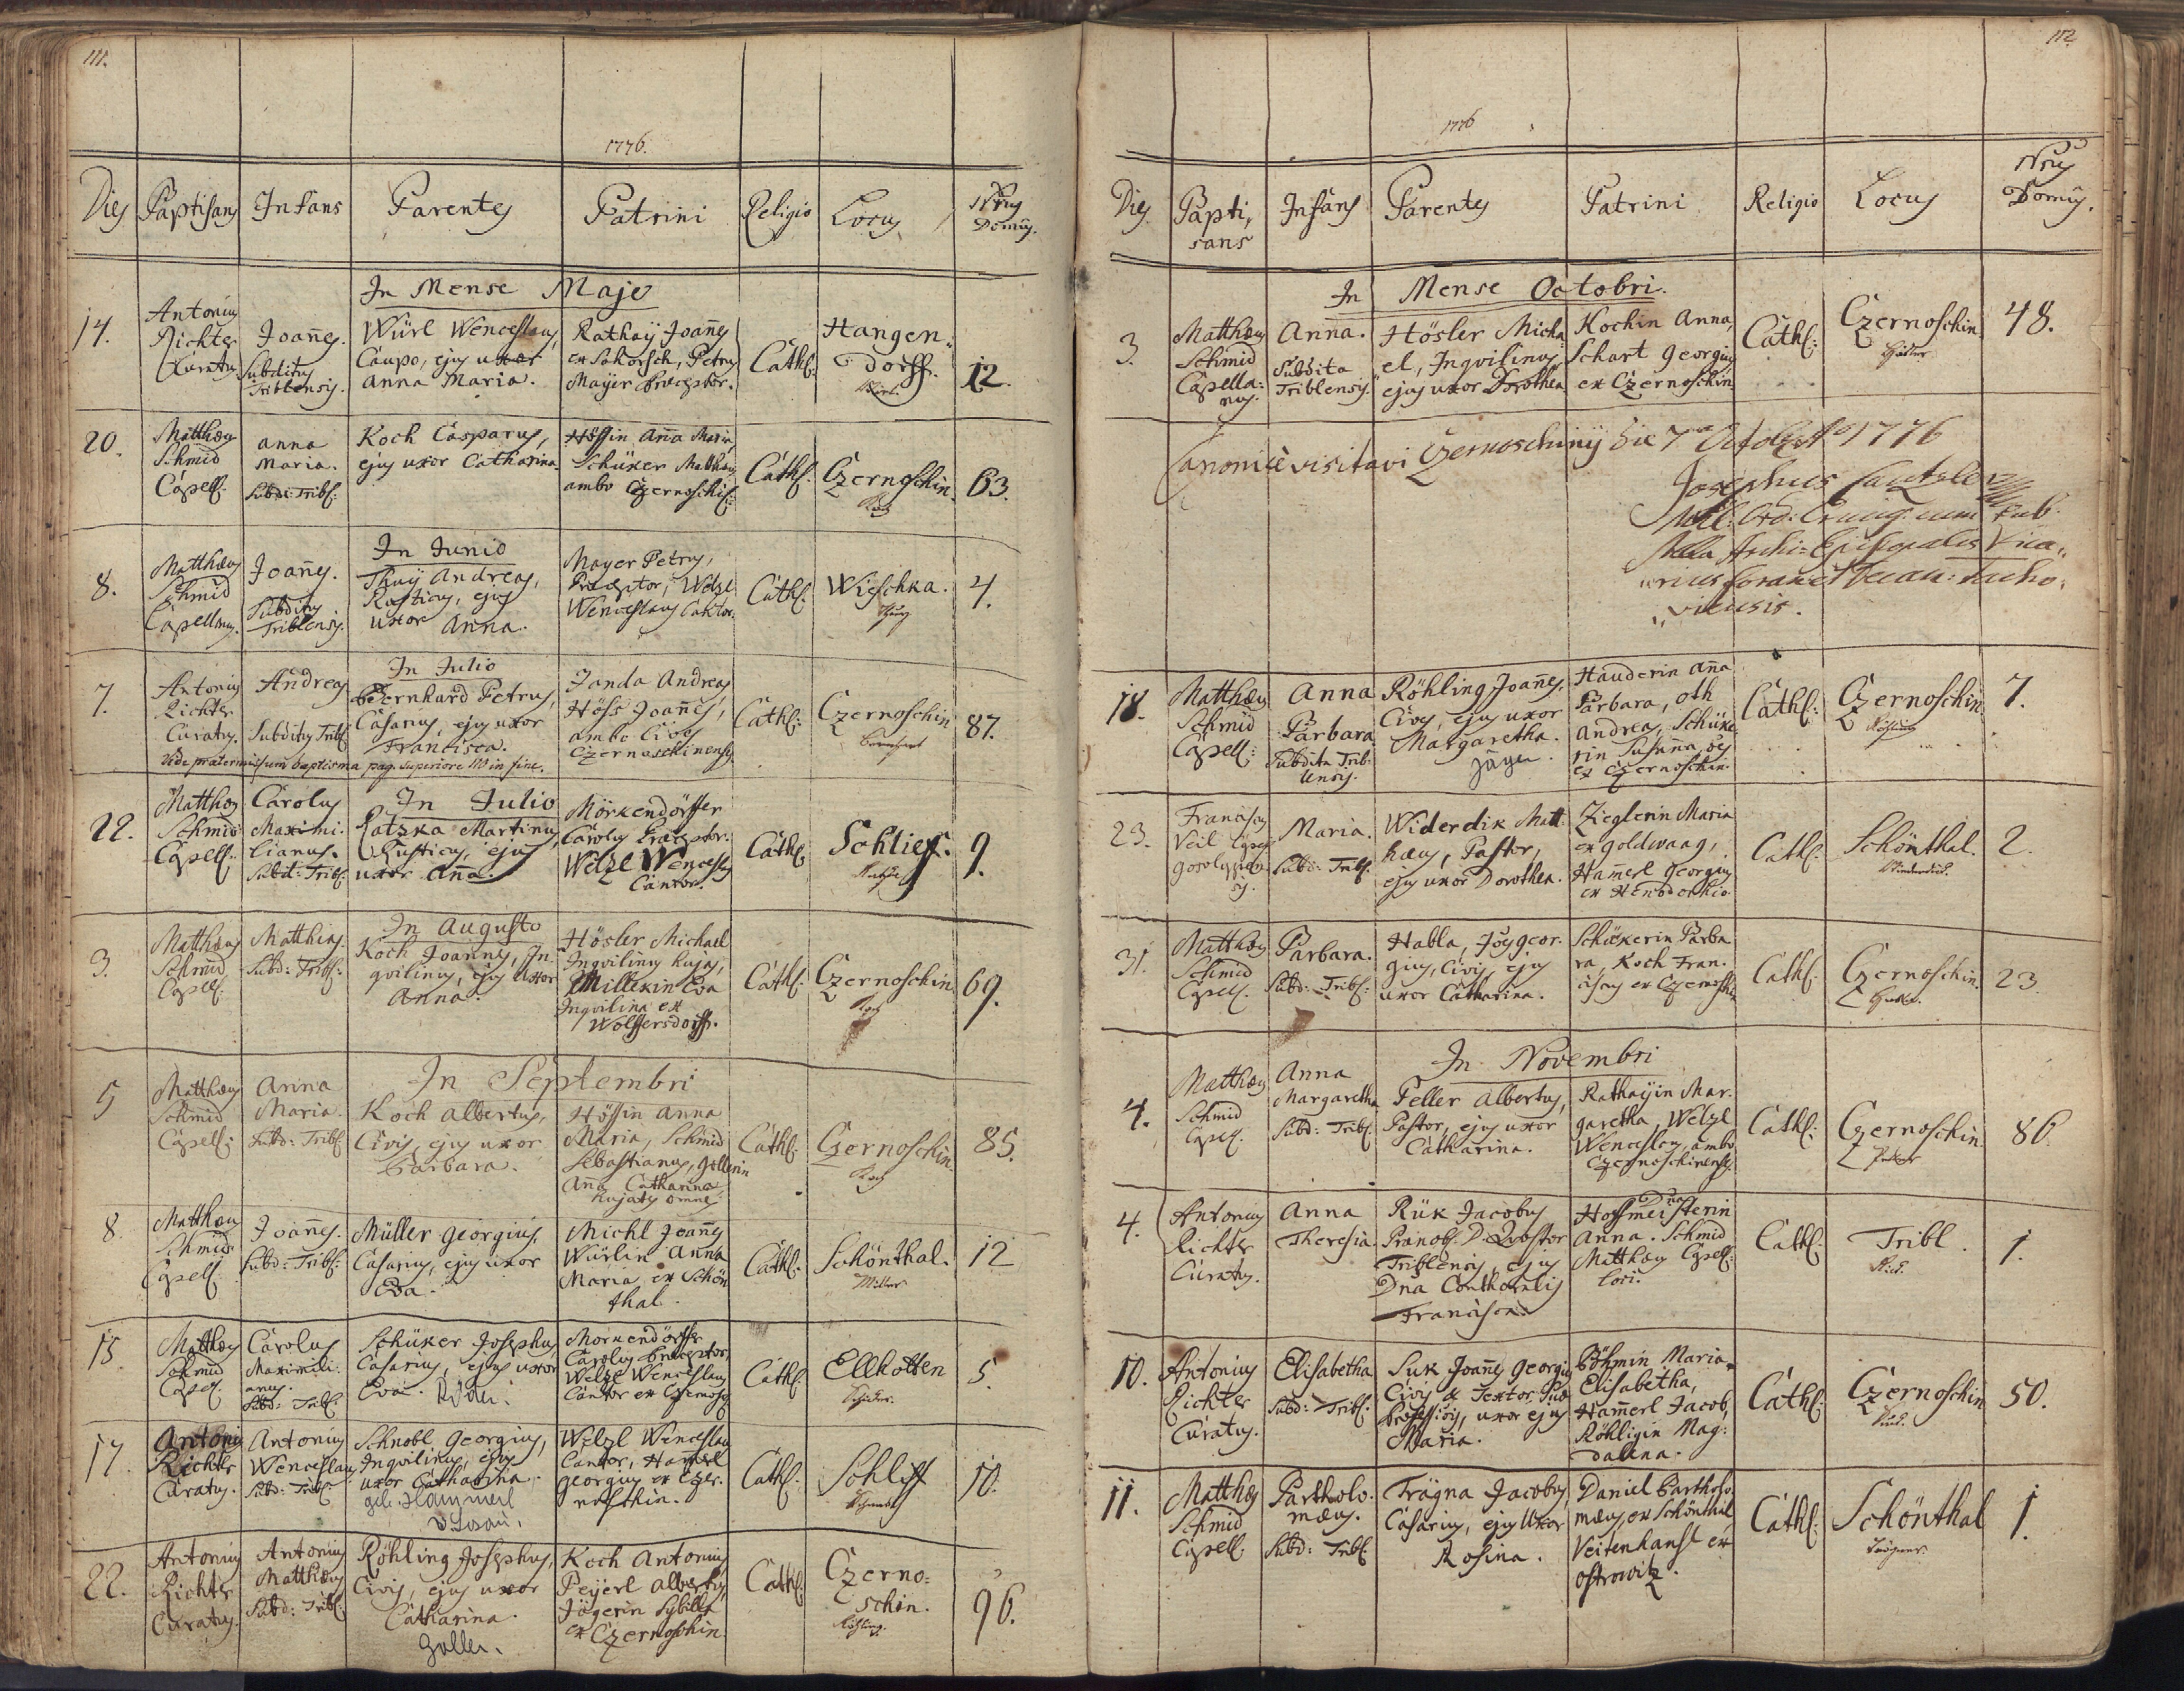 111.
1776.
Dies Baptisans Infans Parentes Patrini Religio Locus Nrus Domûs.
In Mense Majo
14. Antonius Richter Curatus. Joañes. Subditus Triblensis. Würl Wenceslaus, Caupo, ejus uxor Anna Maria. Rathaÿ Joañes ex Sakorsch, Petrus Mayer Præceptor. Cathl: Hangen: dorff. 12.
20. Matthæus Schmid Capell: anna Maria. Subd: Tribl: Koch Casparus, ejus uxor Catharina Hössin Aña Maria, Schüxer Matthæus ambo Czernoschi: Cathl: Czernoschin. Koch 63.
In Junio
8. Matthæus Schmid Capellanus. Joañes. Subditus Triblensis. Thuÿ Andreas, Rusticus, ejus uxor Anna. Mayer Petrus, Præceptor, Welzl Wenceslaus Cantor. Cathl: Wieschka. 4.
In Julio
7. Antonius Richter Curatus. Andreas Subditus Tribl: Bernhard Petrus, Casarius, ejus uxor Francisca. Janda Andreas Höss Joañes, ambo Cives Czernoschinenses Cathl: Czernoschin 87.
Vide prætermissum baptisma pag. superiore 110 in fine.
In Julio
22. Matthæus Schmid Capell: Carolus Maximi: lianus. Subd: Tribl: Ratzka Martinus, Rusticus, ejus uxor Aña. Mörkendörffer Carolus Præceptor. Welzl Wenceslaus Cantor. Cathl: Schlief. 9.
In Augusto
3. Matthæus Schmid Capell: Matthias. Subd: Tribl: Koch Joannes, In: qvilinus, ejus uxor Anna. Hösler Michael Inqvilinus hujas, Millerin Eva Inqvilina ex Wolffersdorff. Cathl: Czernoschin Koch 69.
In Septembri
5 Matthæus Schmid Capell: Anna Maria. Subd: Tribl: Koch Albertus, Civis, ejus uxor Barbara. Hössin Anna Maria, Schmid Sebastianus, Zellerin Aña Catharina hujates omnes Cathl: Czernoschin. Koch 85.
8. Matthæus Schmid Capell: Joañes. Subd: Tribl: Müller Georgius, Casarius, ejus uxor Eva. Michl Joañes Würlin Anna Maria ex Schön thal. Cathl: Schönthal. Miller 12
15. Matthæus Schmid Capell: Carolus Maximili: anus. Subd: Tribl: Schüxer Josephus Casarius, ejus uxor Eva. Mörkendörffer Carolus Præceptor, Welzl Wenceslaus Cantor ex Czernosch Cathl: Ellhotten 5.
17. Antonius Richter Curatus. Antonius Wenceslaus Subd: Tribl: Schnobl Georgius, Inqvilinus, ejus uxor Catharina. geb. Hammerl v Losau. Welzl Wenceslaus Cantor, Hamerl Georgius ex Czer: noschin. Cathl: Schliff 10.
22. Antonius Richter Curatus. Antonius Matthæus Subd: Tribl: Röhling Josephus, Civis, ejus uxor Catharina. Zeller. Koch Antonius Peÿerl Albertus, Jägerin Sybilla ex Czernoschin. Cathl: Czerno: schin. Röhling. 96.
112
1776
Dies Bapti, sans Infans Parentes Patrini Religio Locus Nrus Domûs.
In Mense Octobri.
3. Matthæus Schmid Capella: nus. Anna. Subdita Triblensis. Hösler Micha: el, Inqvilinus, ejus uxor Dorothea. Kochin Anna, Schart Georgius ex Czernoschin Cathl: Czernoschin 48.
Canonicè visitavi Czernoschinÿ die 7 Octobr Aº 1776
Josephus
Archi=Episcopalis Vica„
„rius Foraneus Tacho„
„viensis.
18. Matthæus Schmid Capell: Anna Barbara Subdita Trib: lensis. Röhling Joañes, Civis, ejus uxor Margaretha. Jäger. Hauderin Aña Barbara, Oth Andreas, Schüxe: rin Susaña, oes ex Czernoschin. Cathl: Czernoschin Röhling 7.
23. Franciscus Veil Maria. Subd: Tribl: Widerdik Mat: hæus, Pastor, ejus uxor Dorothea. Zieglerin Maria ex Goldwaag, Hamerl Georgius Cathl: Schönthal. 2.
31. Matthæus Schmid Capell: Barbara. Subd: Tribl: Habla, Jo: Geor: gius, Civis, ejus uxor Catharina. Schüxerin Barba ra, Koch Fran: ciscus ex Czernoschin Cathl: Czernoschin. 23.
In Novembri
4. Matthæus Schmid Capell: Anna Margaretha Subd: Tribl: Peller Albertus, Pastor, ejus uxor Catharina. Rathaÿin Mar: garetha, Welzl Wenceslaus, ambo Czernoschinenses. Cathl: Czernoschin 86.
4. Antonius Richter Curatus. Anna Theresia. Rük Jacobus Prænob. D. Qvæstor Triblensis, ejus Dna Conthoralis Francisca. Dna Hoffmeisterin Anna. Schmid Matthæus Capell: loci. Cathl: Tribl. 1.
10. Antonius Richter Curatus. Elisabetha Subd: Tribl: Suk Joañes Georgius Civis & Textor, uxor ejus Maria. Böhmin Maria Elisabetha, Hamerl Jacob, Röhligin Mag: dalena. Cathl: Czernoschin 50.
11. Matthæus Schmid Capell: Bartholo: mæus. Subd: Tribl: Trägna Jacobus, Casarius, ejus Uxor Rosina. Daniel Bartholo: mæus, ex Schönthal Veitenhansl ex Ostrowitz. Cathl: Schönthal 1.